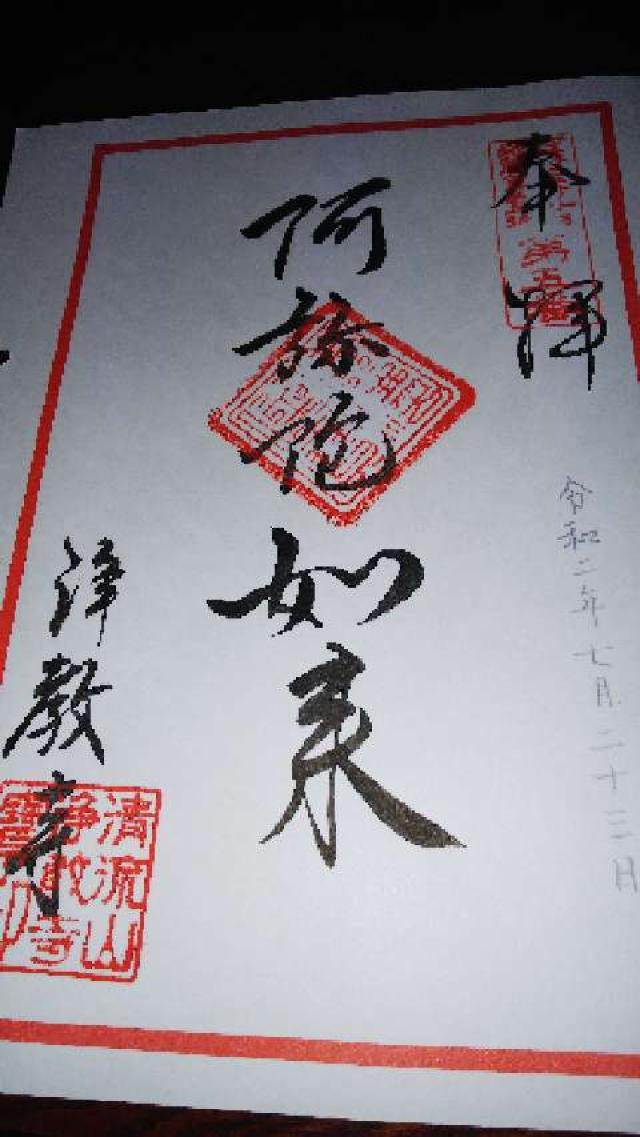 奉拝
第五番
令和二年七月二十三日
阿弥陀如来
浄教寺
清流山
浄教寺